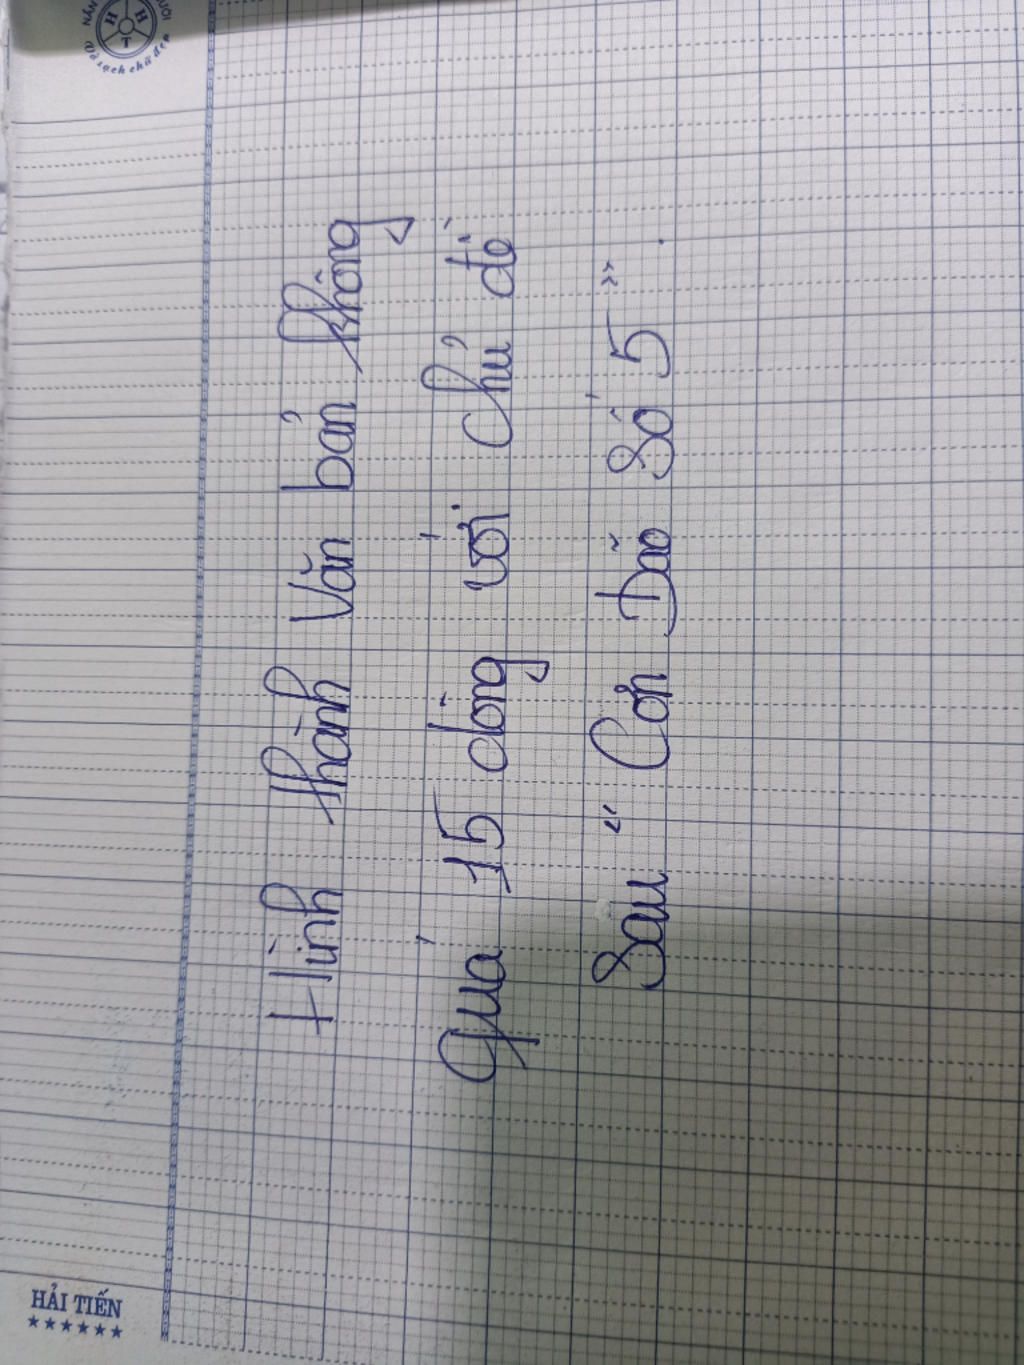 Hình thành Văn bản không
quá 15 dòng với chủ đề
Sau " Cơn Bão Số 5 " .
HẢI TIẾN
Vở sạch chữ đẹp
H H T